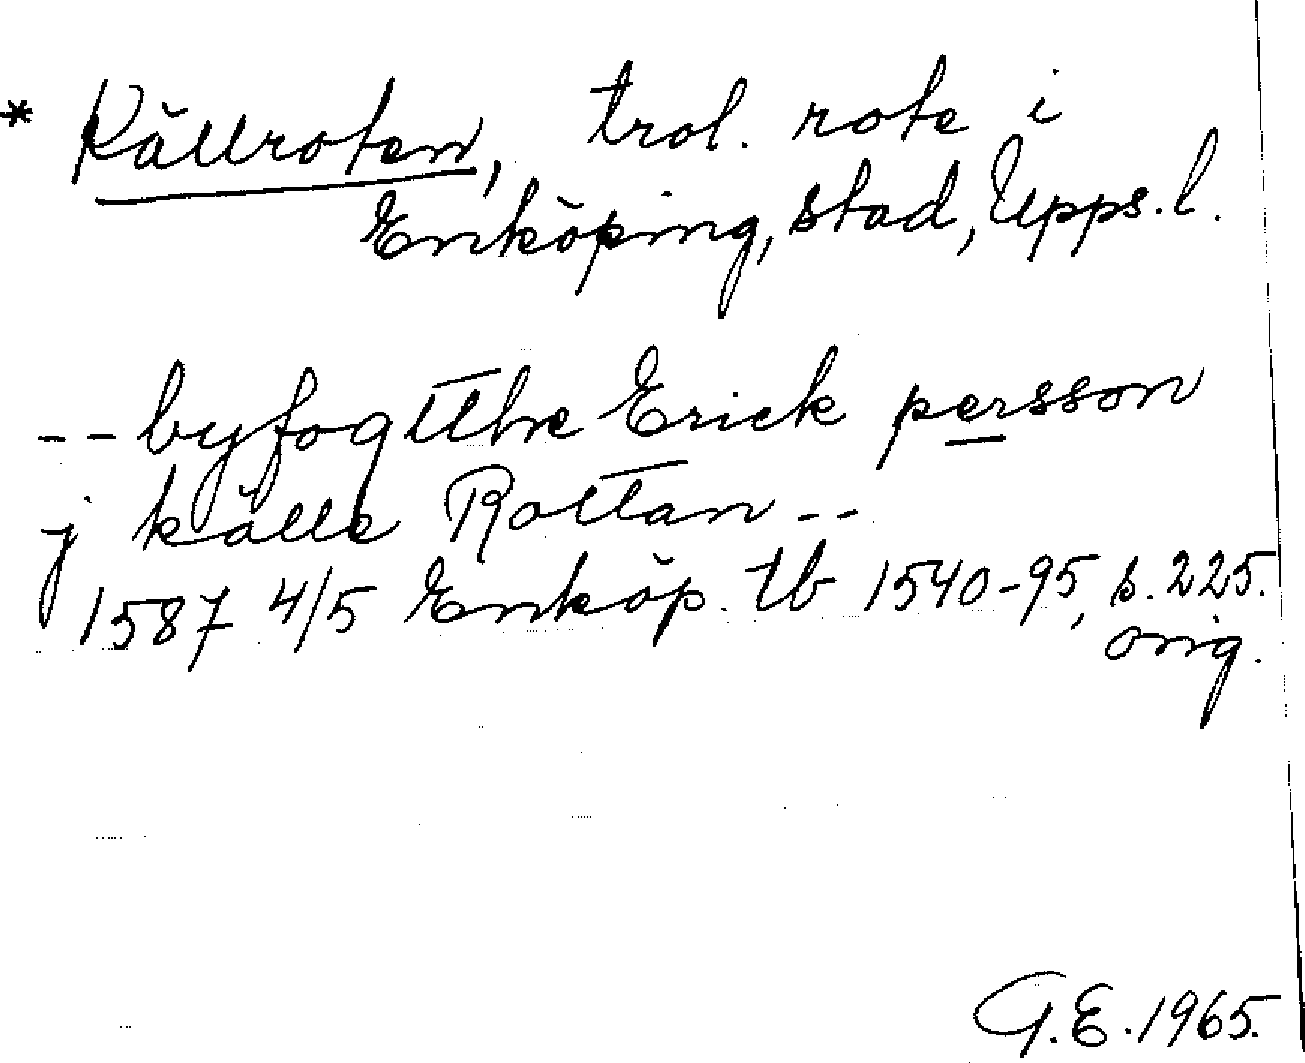 * Källroten, trol. rote i
Enköping, stad, Upps. l.
-- byfogtthe Erick persson
j källe Rottan --
1587 4/5 Enköp. tb 1540-95, s. 225.
orig.
G.E. 1965.